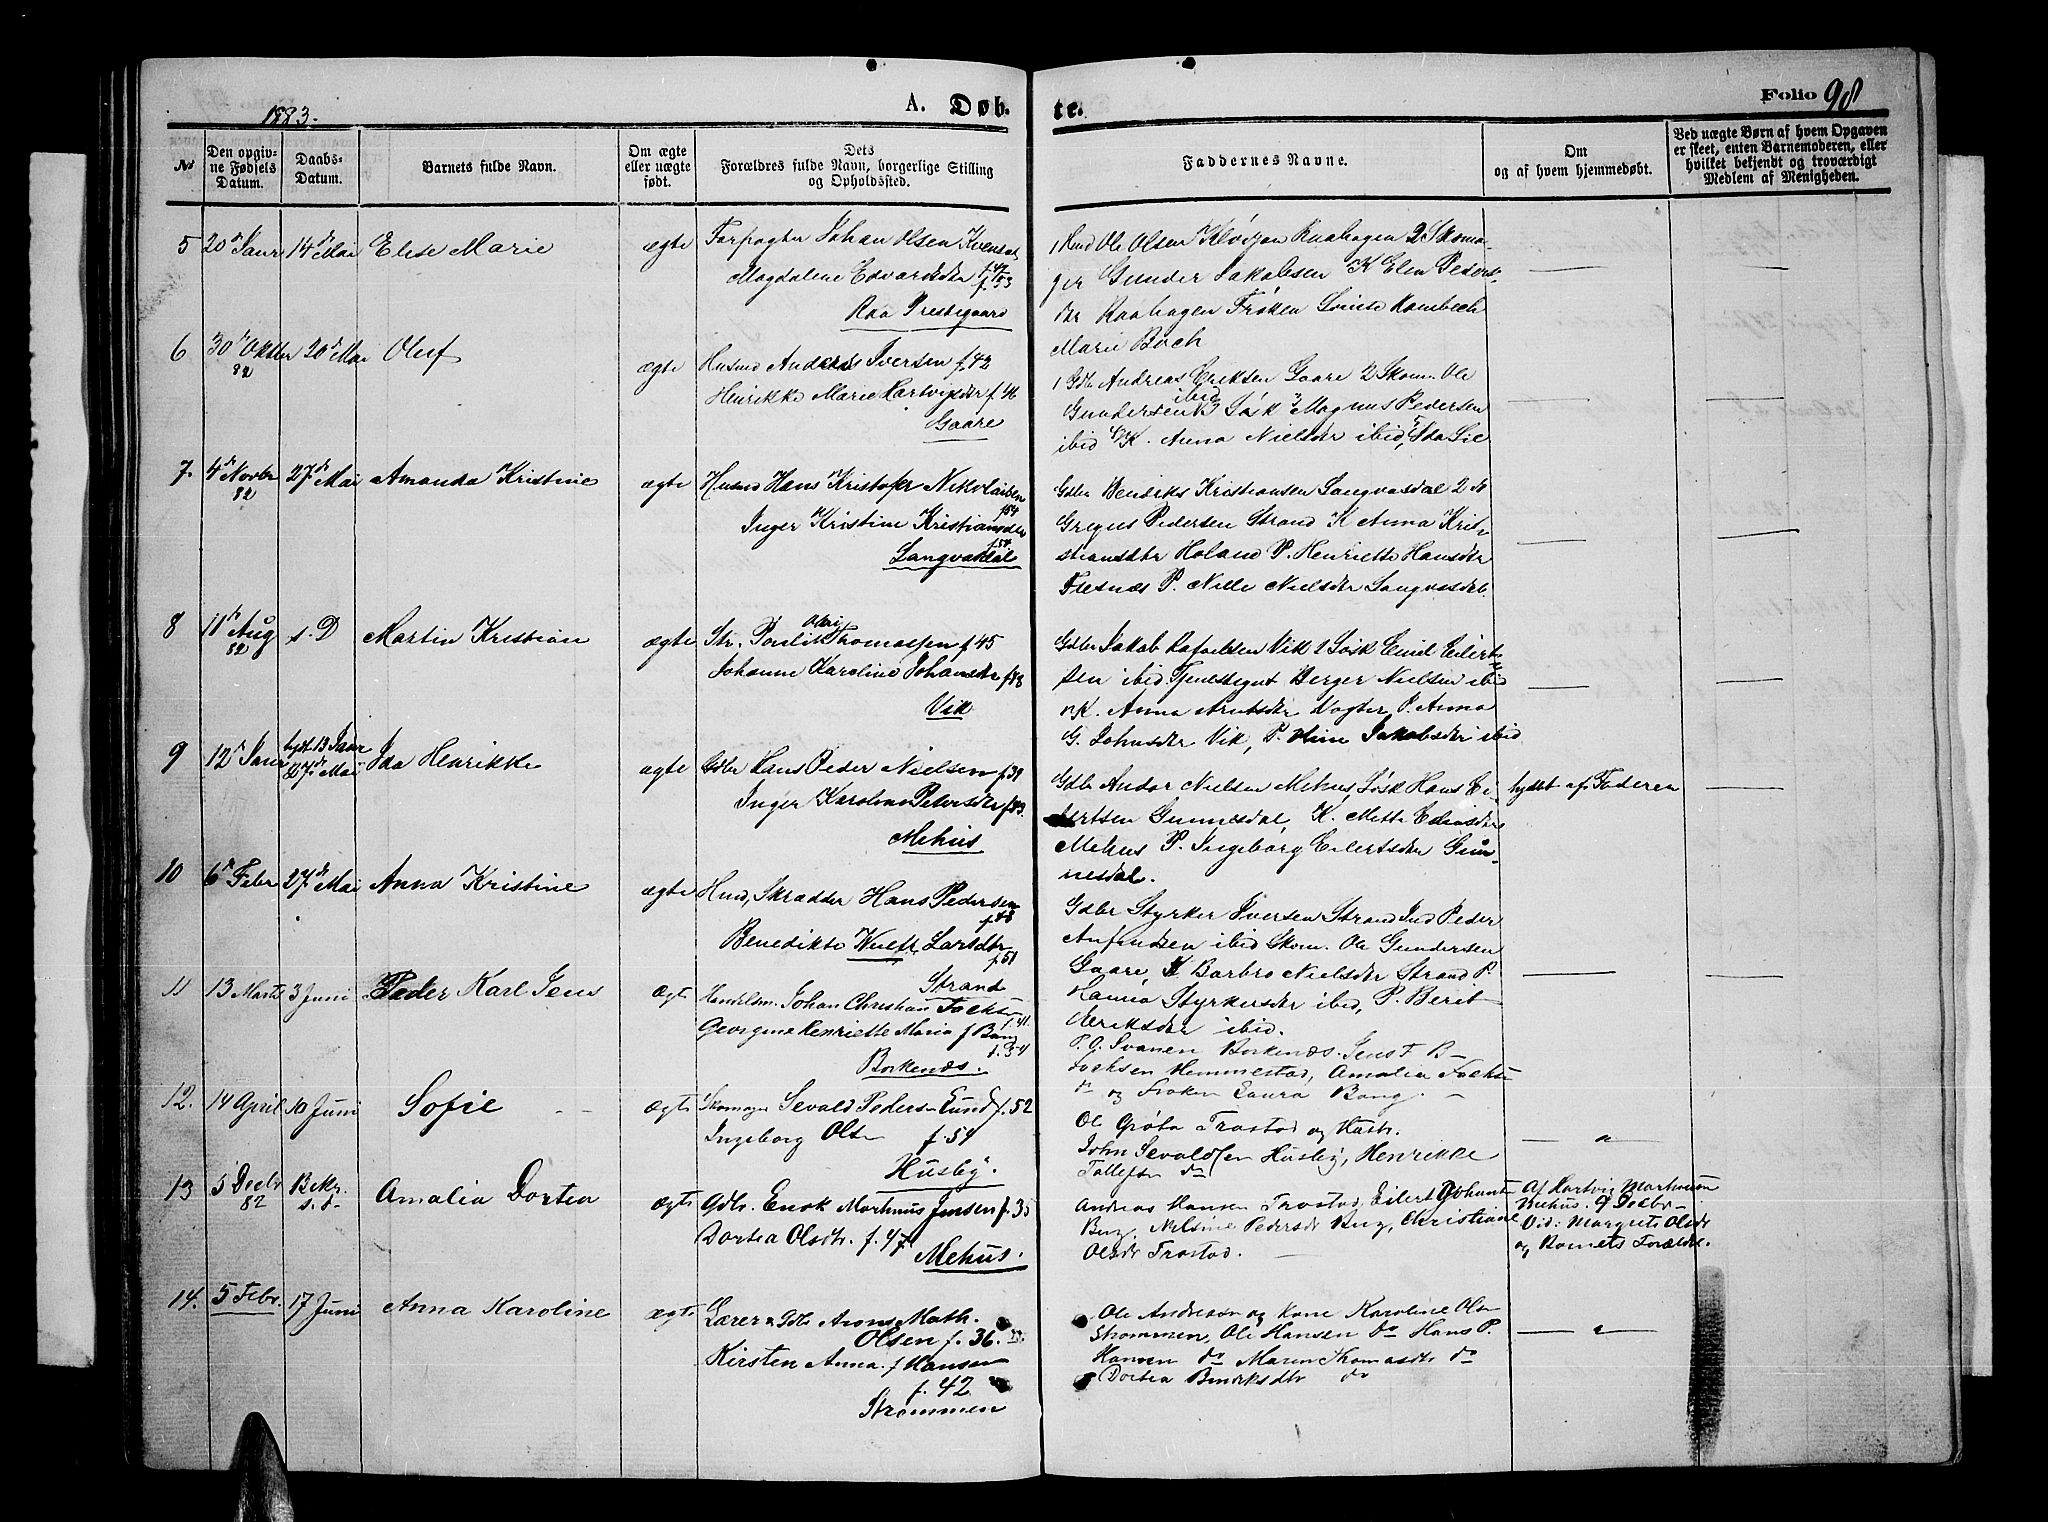 1883.
A. Døb-
te.
Folio 98
No
Den opgiv-
ne Fødsels
Datum.
Daabs-
Datum.
Barnets fulde Navn.
Om ægte
eller uægte
født.
Dets
Forældres fulde Navn, borgerlige Stilling
og Opholdssted.
Faddernes Navne.
Om
og af hvem hjemmedøbt.
Ved uægte Børn af hvem Opgaven
er skeet, enten Barnemoderen, eller
hvilket bekjendt og troværdigt
Medlem af Menigheden.
5 20de Janr 14de Mai Elise Marie ægte
Forpagter Johan Olsen
Magdalene f. 53
Raa Prestegaard
1 Hmd Ole Olsen Raahagen 2 Skoma-
ger Gunder Jakobsen K Elen Peders-
dtr Raahagen Frøken Kambech
Marie Boch
6 30te Oktbr 82 20de Mai Oluf ægte
Husmd Anders Iversen f. 42
Henrikke Marie Hartvigsdtr f. 46
Gaare
1 Gdbr Andreas Eriksen Gaare 2 Skom. Ole
Gundersen ibid 3 Magnus Pedersen
ibid K. Anna Nielsdtr ibid, Ida
7. 4de Novbr 82 27de Mai Amanda Kristine ægte
Husmd Hans Kristofer Nikolaisen
f. 54
Inger Kristine Kristiansdtr
f. 54
Langvasdal
Gdbr Kristiansen Langvasdal 2
Pedersen Strand K Anna Krist-
stiansdtr Holand P. Henriette Hansdtr
Flesnæs P. Nille Nielsdtr Langvasdal.
8 11te Aug 82 s. D Martin Kristian ægte
Str. Thomassen f. 45
Johanne Karoline Johansdtr f. 48
Vik
Gdbr Jakob Rafaelsen Vik Emil Eilert-
sen ibid. Berger Nielsen ibid
K. Anna P. Anna
G. Johnsdtr Vik, P. Jakobsdtr ibid
9 12te Janr hjdt 13 Janr 27de Mai Ida Henrikke ægte
Gdbr Hans Peder Nielsen f. 39
Inger Karoline Petersdtr f. 43.
Mehus
Gdbr Andor Nielsen Mehus, Hans Ei-
lertsen Gunnesdal, K. Mette
Mehus P. Ingeborg Eilertsdtr Gun-
nesdal.
hjdbt af Faderen
10 6te Febr 27de Mai Anna Kristine ægte
Hmd, Skrædder Hans Pedersen
f. 48
Benedikte Wulff, Larsdtr
f. 51
Strand
Gdbr Styrker Iversen Strand Ind Peder
Anfindsen ibid Skom. Ole Gundersen
Gaare K Barbro Nielsdtr Strand P.
Hanna Styrkersdtr ibid, P. Berit
Eriksdtr ibid.
11 13 Marts 3 Juni Peder Karl Jens ægte
Handelsm. Johan Christian Fochsen
f. 41.
Georgine Henriette Maria f Bang
f. 54
Borkenæs.
P. O. Svanem Borkenæs. Jens F B-
Fochsen Hemmestad, Amalia Fochsen
do og Frøken Laura Bang.
12. 14 April 10 Juni Sofie ægte
Skomager Sevald Pedersen Lund f. 52
Ingeborg Olsen f. 54
Husby.
Ole Grøtø Trastad og Hustr.
John Sevaldsen Husby, Henrikke
Tollefsen do
13 5 Decbr 82 Bekr. s. d. Amalia Dortea ægte
Gdbr. Enok Martinus Jensen f. 35
Dortea Olsdtr. f. 47
Mehus.
Andreas Hansen Trastad, Eilert Johansen
Berg, Nelsine Pedersdtr Berg, Christiane
Olsdtr Trastad.
Af Hartvig Martinussen
Mehus. 9 Decbr
Vid: Margrete Olsdtr
og Barnets Forældre.
14. 5 Febr. 17 Juni Anna Karoline ægte
Lærer & Gdb Arons Math.
Olsen f. 36.
Kirsten Anna f Hansen
f. 42
Strømmen
Ole Andersen og Kone Karoline Olsen
Strømmen, Ole Hansen do Hans P.
Hansen do Maren Thomasdtr do
Dortea Bendiksdtr do